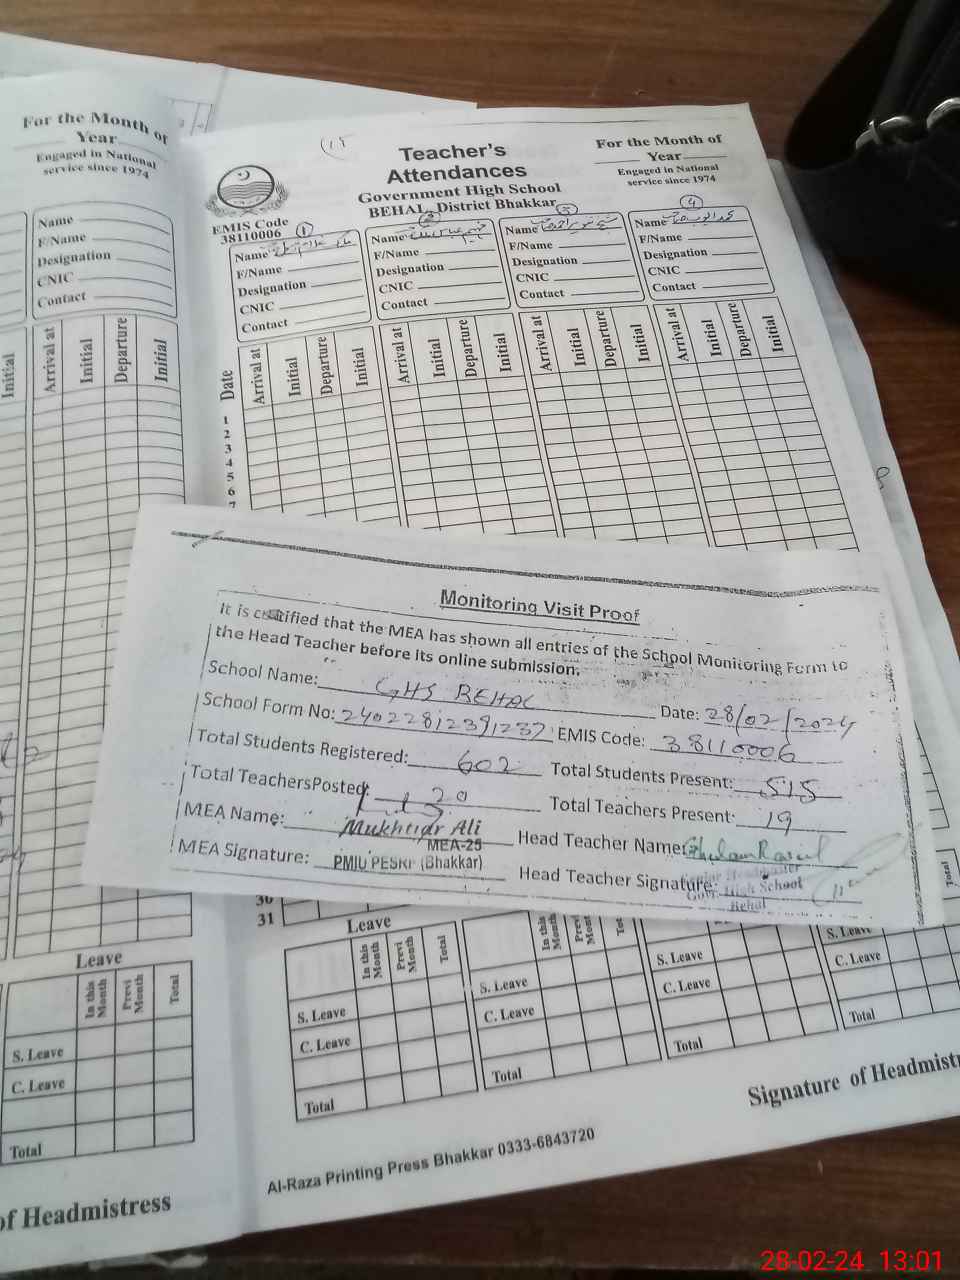 For the Month of
Year
Engaged in National
service since 1974
Name
F/Name
Designation
CNIC
Contact
Initial
Arrival at
Initial
Departure
Initial
Teacher's
Attendances
Government High School
BEHAL, District Bhakkar
For the Month of
Year
Engaged in National
service since 1974
EMIS Code
38110006
1
2
3
4
Name
F/Name
Designation
CNIC
Contact
Name
F/Name
Designation
CNIC
Contact
Name
F/Name
Designation
CNIC
Contact
Name محمد ایوب صاحب
F/Name
Designation
CNIC
Contact
Date
Arrival at Initial Departure Initial
Arrival at Initial Departure Initial
Arrival at Initial Departure Initial
Arrival at Initial Departure Initial
1
2
3
4
5
6
7
Monitoring Visit Proof
It is certified that the MEA has shown all entries of the School Monitoring Form to
the Head Teacher before its online submission.
School Name: GHS BEHAL Date: 28/02/2024
School Form No: 24022812391237 EMIS Code: 38110006
Total Students Registered: 602 Total Students Present: 515
Total Teachers Posted: 20 Total Teachers Present: 19
MEA Name: Mukhtiar Ali Head Teacher Name: Ghulam Rasul
MEA-25
MEA Signature: PMIU PESRP (Bhakkar) Head Teacher Signature:
Senior Headmaster
Govt. High School
Behal
30
31
Leave
In this Month
Previ Month
Total
S. Leave
C. Leave
Total
Leave
In this Month
Previ Month
Total
S. Leave
C. Leave
Total
In this Month
S. Leave
C. Leave
Total
S. Leave
C. Leave
Total
S. Leave
C. Leave
Total
Total
Signature of Headmistr
of Headmistress
Al-Raza Printing Press Bhakkar 0333-6843720
28-02-24 13:01